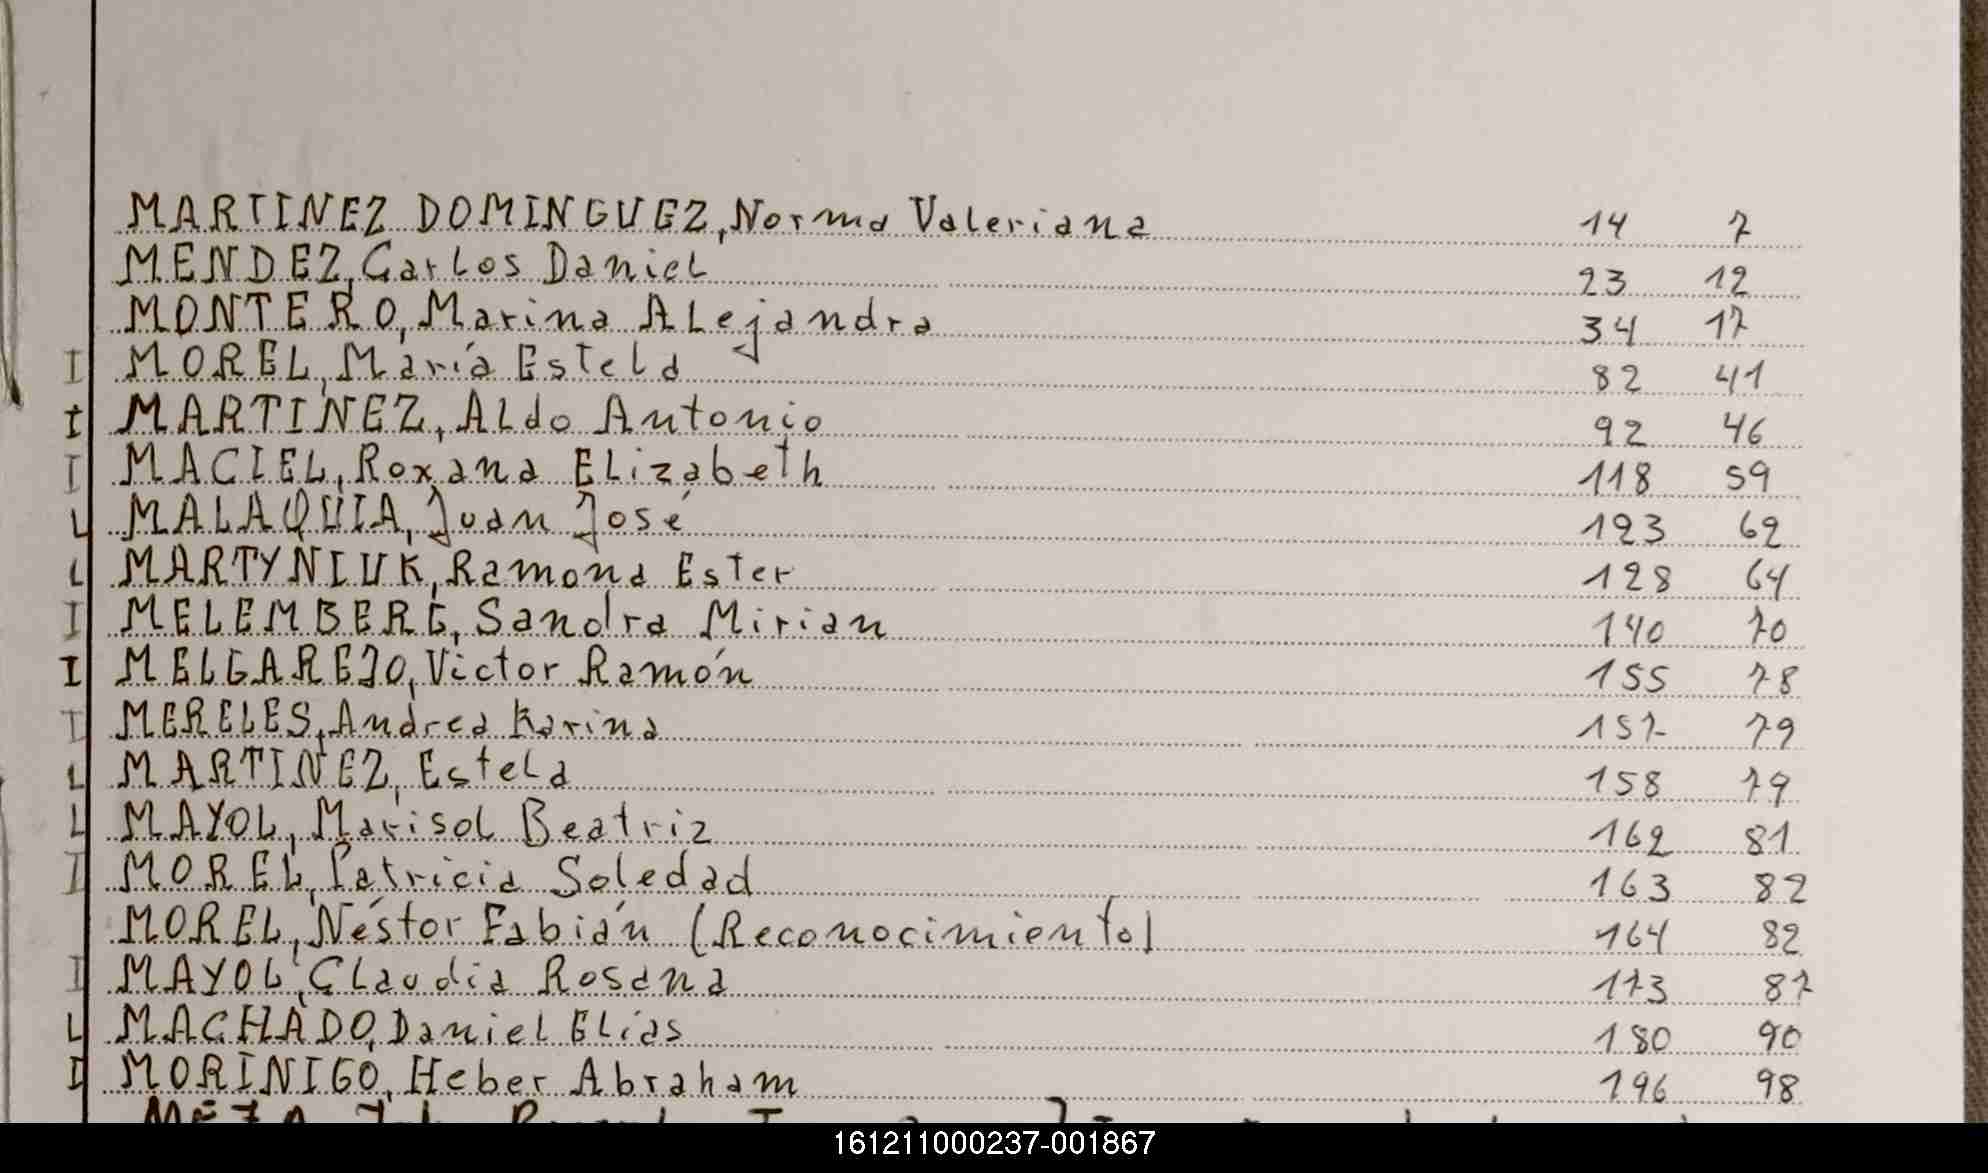 MARTINEZ DOMINGUEZ, Norma Valeriana 14 7
MENDEZ, Carlos Daniel 23 12
MONTERO, Marina Alejandra 34 17
I MOREL, María Estela 82 41
I MARTINEZ, Aldo Antonio 92 46
I MACIEL, Roxana Elizabeth 118 59
L MALAQUIA, Juan José 123 62
L MARTYNIUK, Ramona Ester 128 64
I MELEMBERG, Sandra Mirian 140 70
I MELGAREJO, Víctor Ramón 155 78
I MERELES, Andrea Karina 157 79
L MARTINEZ, Estela 158 79
L MAYOL, Marisol Beatriz 162 81
I MOREL, Patricia Soledad 163 82
MOREL, Néstor Fabián (Reconocimiento) 164 82
I MAYOL, Claudia Rosana 173 87
L MACHADO, Daniel Elías 180 90
I MORINIGO, Heber Abraham 196 98
161211000237-001867